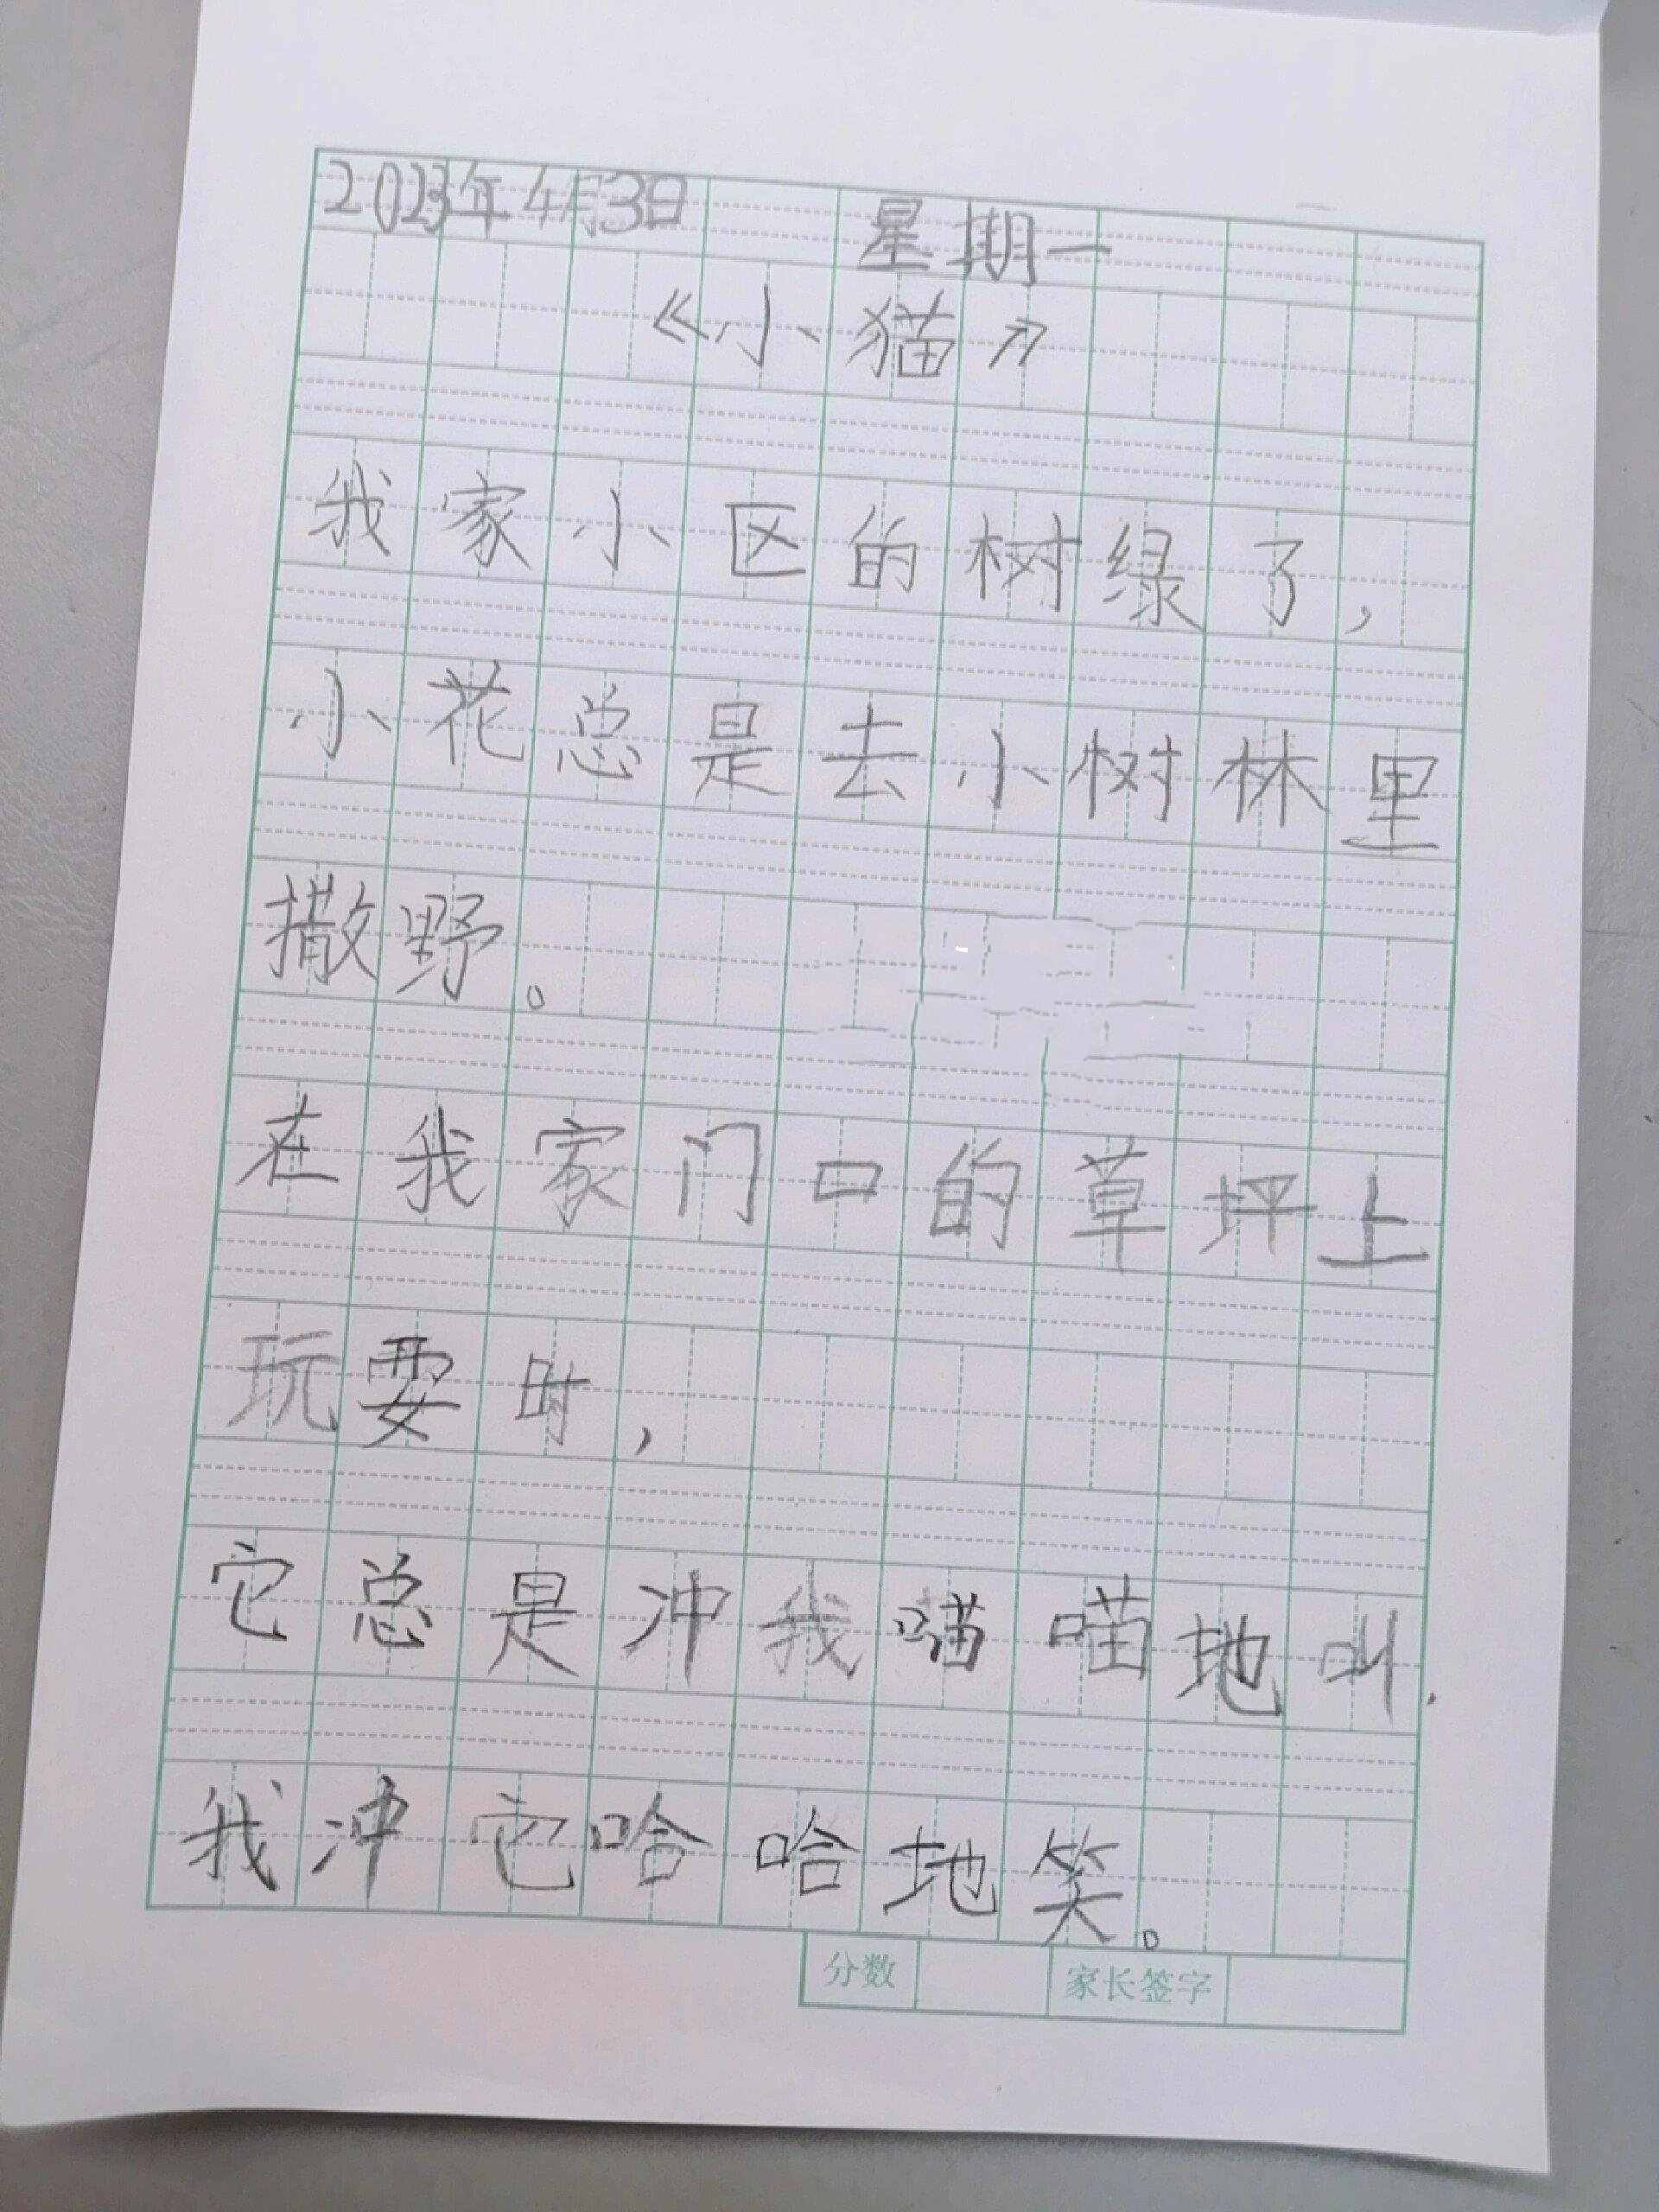 2023年4月3日 星期一
《小猫》
我家小区的树绿了，
小花总是去小树林里
撒野。
在我家门口的草坪上
玩耍时，
它总是冲我喵喵地叫，
我冲它哈哈地笑。
分数 家长签字